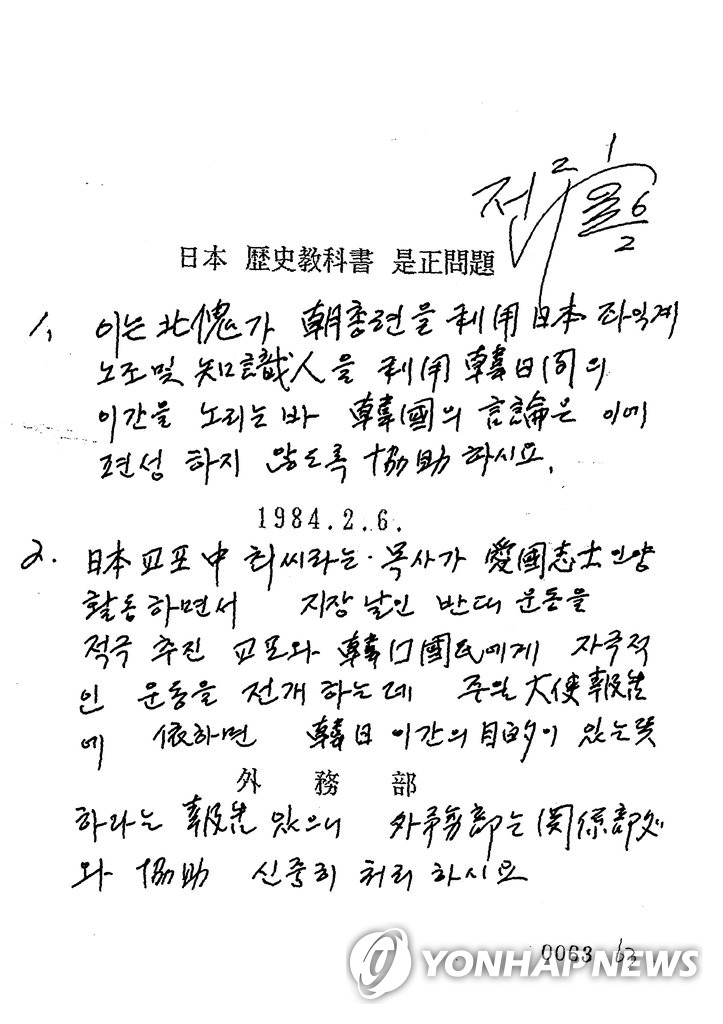 전두환
2/6
日本 歷史敎科書 是正問題
1, 이는 北傀가 朝총련을 利用 日本 좌익계
노조 및 知識人을 利用 韓日間의
이간을 노리는바 韓國의 言論은 이에
편성 하지 않도록 協助 하시요.
1984.2.6.
2. 日本 교포中 최씨라는 목사가 愛國志士인양
활동하면서 지장 날인 반대 운동을
적극 추진 교포와 韓國民에게 자극적
인 운동을 전개 하는데 주일 大使 報告
에 依하면 韓日 이간의 目的이 있는듯
外務部
하라는 報告 있으니 外務部는 関係部処
와 協助 신중히 처리 하시요
0063
YONHAP NEWS